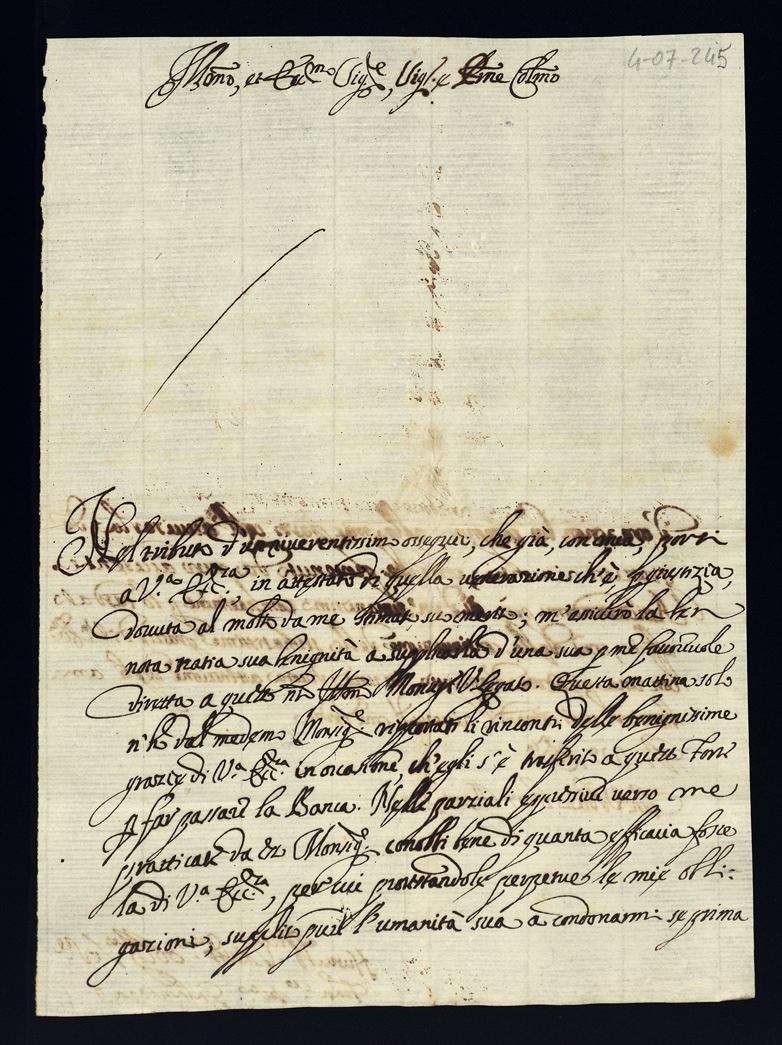 4-07-245
Illmo, et Eccmo Sigre, Sigr e Pne Colmo
Nel tributo d'un riverentissimo ossequio, che già, con mia, porsi
a V.ra Ecc.za, in attestato di quella venerazione ch'è p giustizia,
dovuta al molto da me stimato suo merito; m'assicurò la ben
nota innata sua benignità a supplicarla d'una sua p me favorevole
diretta a questo nro Illmo Monsigr V. Legato. Questa mattina solo
n'hò dal medemo Monsigre riportati li rincontri delle benignissime
grazie di V.ra Ecc.za in occasione, ch'egli s'è trasferito a questo Forte
p far passare la Banca. Nelle parziali espressive verso me
pratticate da do Monsigre conobbi bene di quanta efficacia fosse
la di V.ra Ecc.za, per cui protestandole perpetue le mie obli:
gazioni, supplico pure l'umanità sua a condonarmi se prima